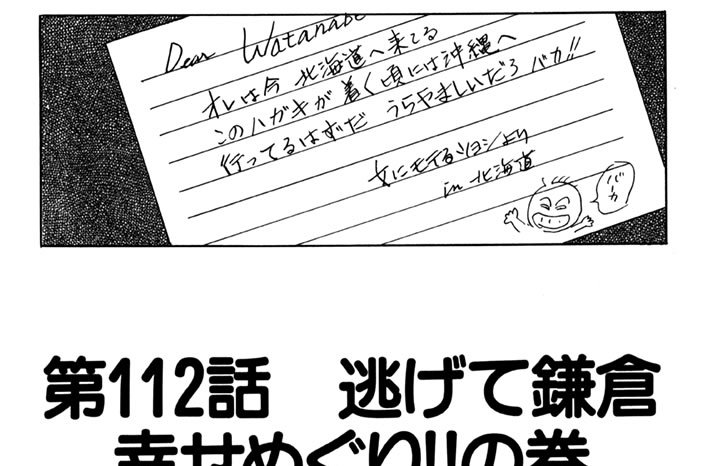 Dear Watanabe
オレは今 北海道へ来てる
このハガキが 着く頃には沖縄へ
行ってるはずだ うらやましいだろ バカ!!
女にモテるツヨシより
in 北海道
バーカ
第112話 逃げて鎌倉
幸せめぐり!!の巻